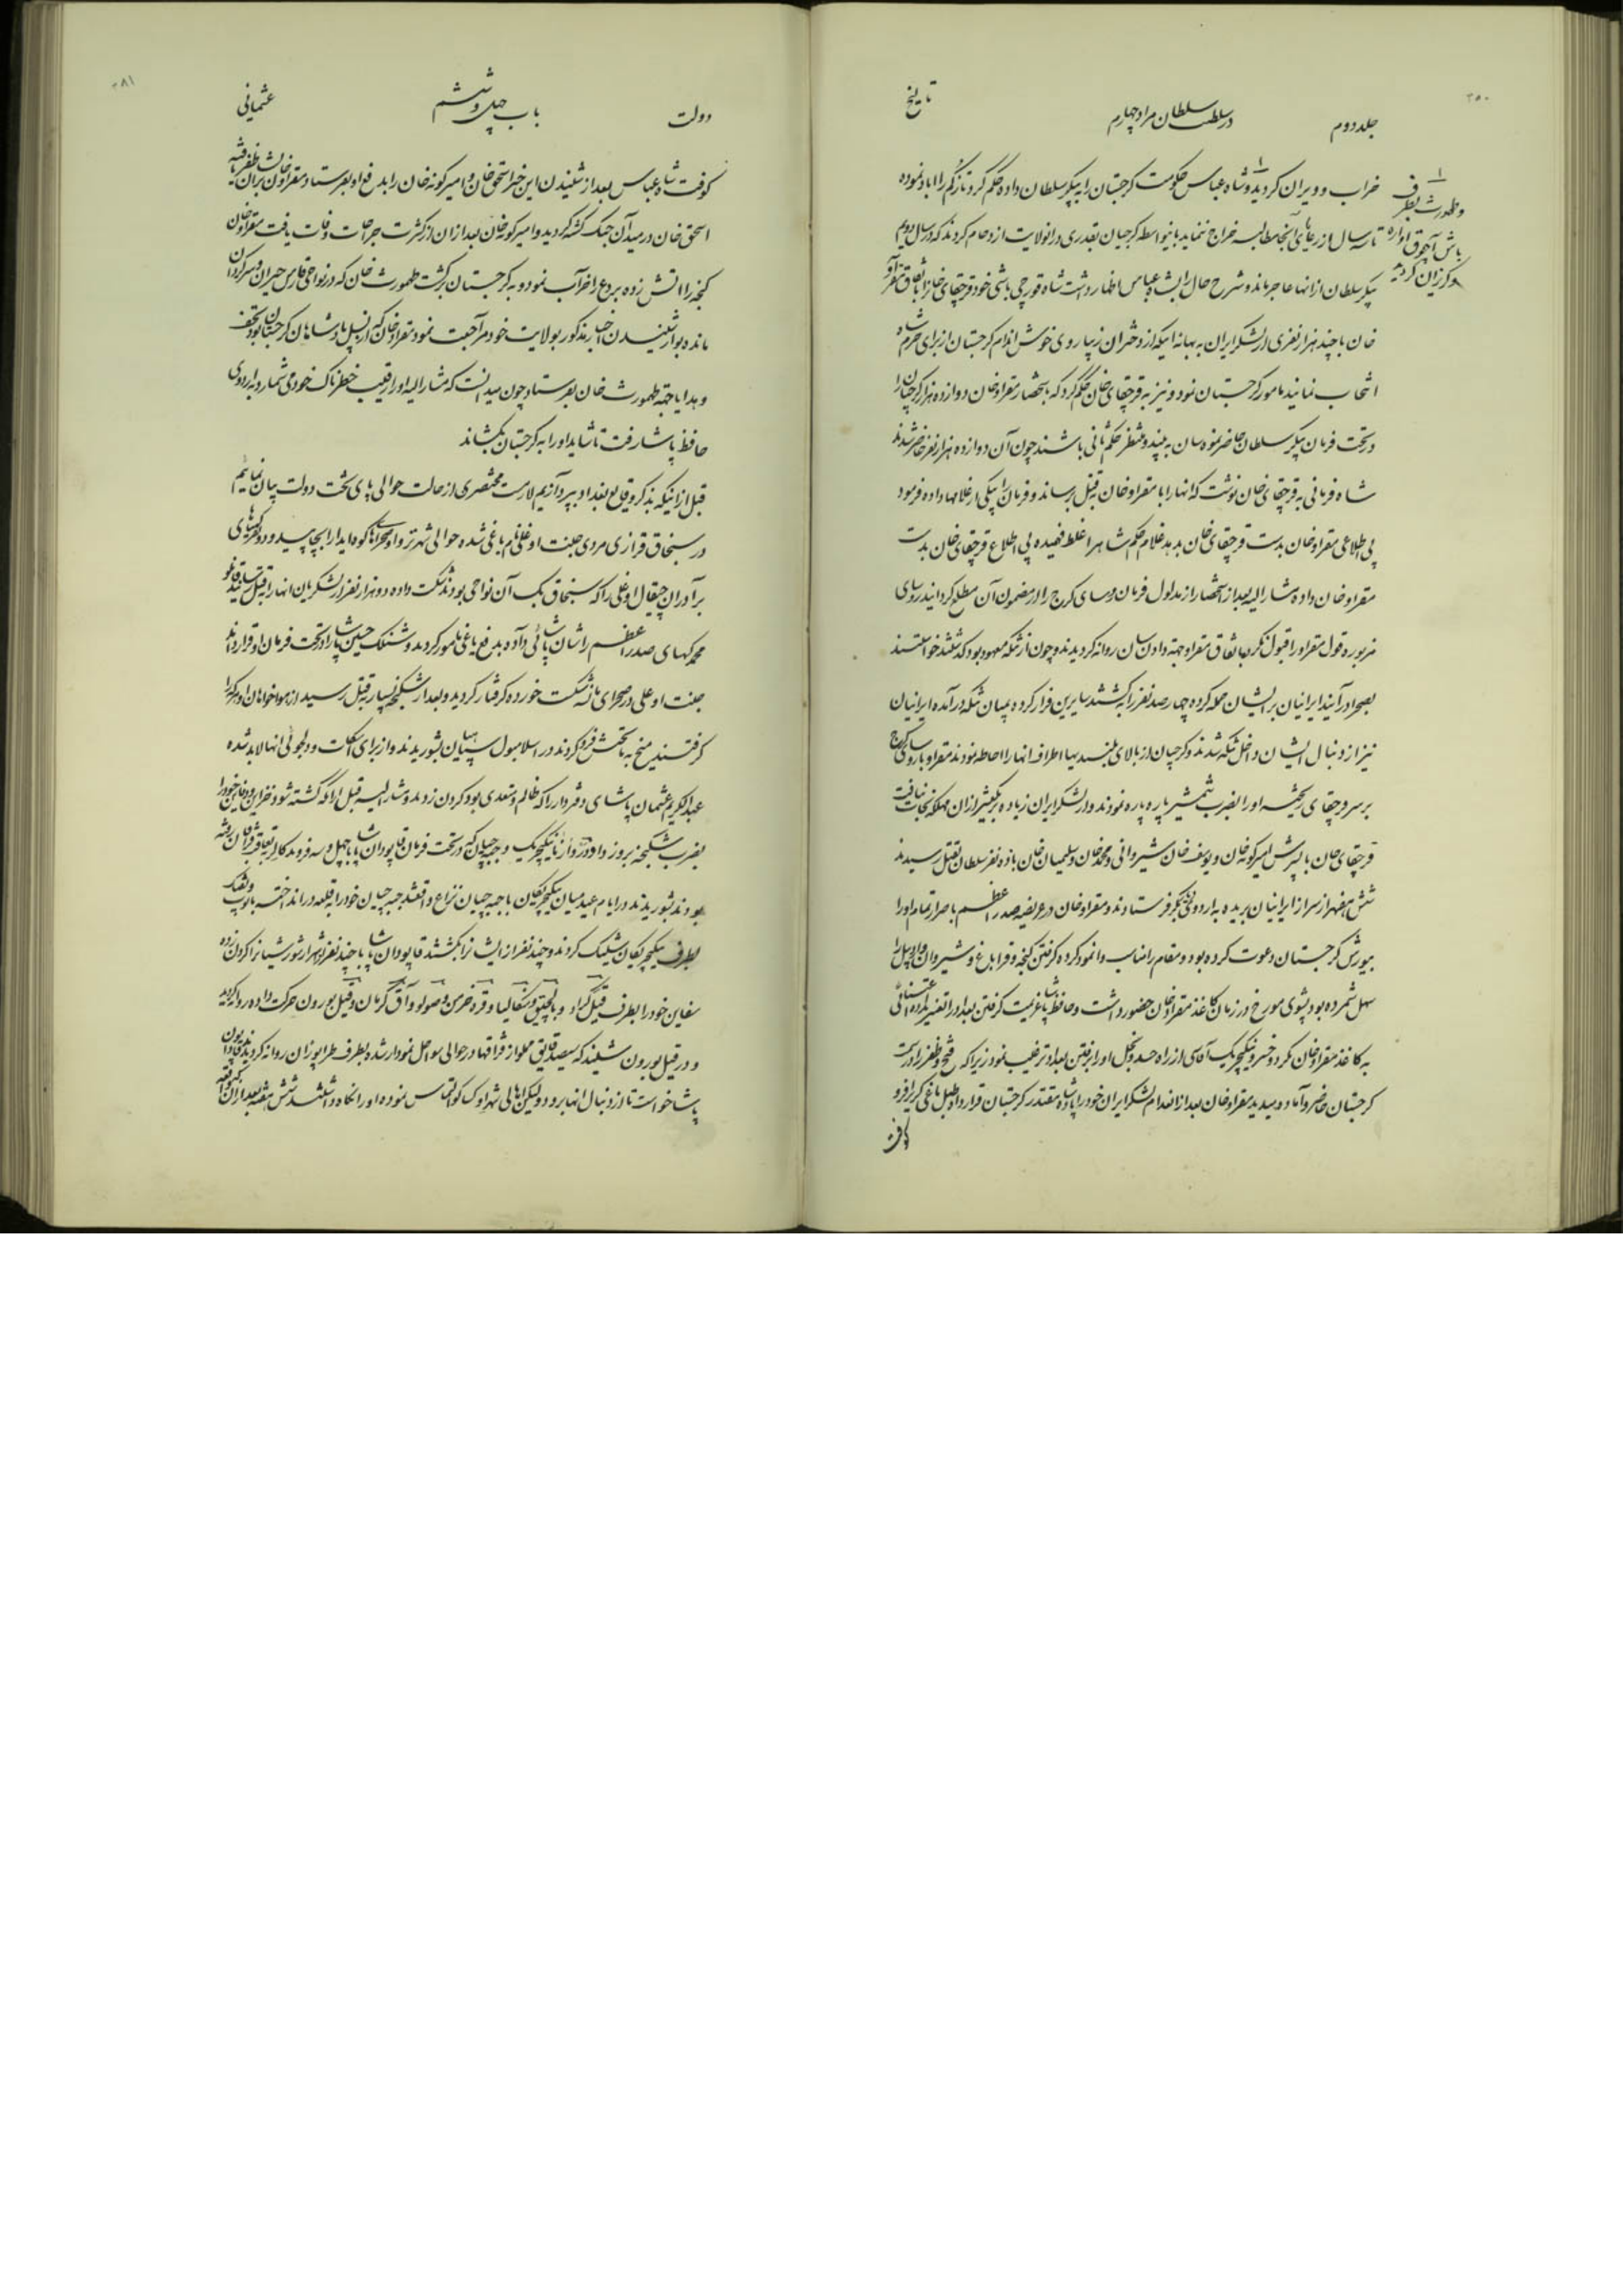 ۲۵۰
جلد دوم
در سلطنت سلطان مراد چهارم
تاریخ
خراب و ویران کردید و شاه عباس حکومت کرجستان را به پیکر سلطان داده حکم کرد تا ترکم را اباد نموده
تا سه سال از رعایای آنجا مطالبه خراج ننماید باینواسطه کرجیان بقدری در انولایت ازدحام کردند که در سال دویم
پیکر سلطان از انها عاجز مانده شرح حال را بشاه عباس اظهار داشت شاه قورچی باشی خود قرچقای خانرا باتفاق مقراو
خان با چند هزار نفری از لشکر ایران به بهانه اینکه از دختران زیبا روی خوش اندام کرجستان از برای حرم شاه
انتخاب نمایند مامور کرجستان نمود و نیز به قرچقای خان حکم کرد که باستحضار مقراو خان دوازده هزار کرجیان را
در تحت فرمان پیکر سلطان حاضر نموده سان به بیند و منتظر حکم ثانی باشند چون آن دوازده هزار نفر حاضر شدند
شاه فرمانی به قرچقای خان نوشت که انها را با مقراو خان بقتل برساند و فرمان را بیکی از غلامها داده فرمود
بی اطلاعی مقراو خان بدست قرچقای خان بدهد غلام حکم شاه را غلط فهمیده بی اطلاع قرچقای خان بدست
مقراو خان داده مشار الیه بعد از استحضار از مدلول فرمان روسای کرج را از مضمون آن مطلع کردانید روسای
مزبوره قول مقراو را قبول نکرده باتفاق مقراو جهة دادن سان روانه کردیدند و چون از تنکه معهود بود که گذشته خواستند
بصحرا در آیند ایرانیان بر ایشان حمله کرده چهار صد نفر را بکشتند سایرین فرار کرده بمیان تنکه در آمده ایرانیان
نیز از دنبال ایشان داخل تنکه شدند و کرجیان از بالای بلندیها اطراف انها را احاطه نمودند مقراو با روسای کرج
بر سر قرچقای ریخته او را بضرب شمشیر پاره پاره نمودند و از لشکر ایران زیاده بر یکعشر از ان مهلکه نجات نیافت
قرچقای خان با پسرش امیر کونه خان و یوسف خان شیروانی و محمد خان و سلیمان خان با ده نفر سلطان بقتل رسیدند
شش هفهزار سر از ایرانیان بریده به اردوی پیکر فرستادند و مقراو خان در عریضه صدر اعظم باصرار تمام او را
بیورش کرجستان دعوت کرده بود و مقام را مناسب وانمود کرده گرفتن کنجه و قراباغ و شیروان و اردبیل را
سهل شمرده بود پشوی مورخ در زمان کاغذ مقراو خان حضور داشت و حافظ پاشا عزیمت کرفتن بغداد را تغییر نداده اعتنائی
به کاغذ مقراو خان نکرد و خسرو ینیکچریک آقاسی از راه حسد و بخل او را برفتن بغداد ترغیب نمود زیرا که فتح و ظفر را در سمت
کرجستان حاضر و آماده میدید مقراو خان بعد از انهدام لشکر ایران خود را پادشاه مقتدر کرجستان قرار داد و طبل یاغی کری را فرو
کوفت
۱
و طهمورث بطرف
باش آچوق آواره
و کریزان کردید
۲۸۱
دولت
باب چهل و ششم
عثمانی
کوفت شاه عباس بعد از شنیدن این خبر اسحق خان و امیر کونه خان را بدفع او بفرستاد مقراو خان بر ایشان ظفر یافته
اسحق خان در میدان جنک کشته کردید و امیر کونه خان بعد از ان از کثرت جراحات وفات یافت مقراو خان
کنجه را اتش زده بردع را خراب نمود و به کرجستان برکشت طهمورث خان که در نواحی قارص حیران و سرکردان
مانده بود از شنیدن اخبار مذکور بولایت خود مراجعت نمود مقراو خان که از نسل پادشاهان کرجستان نبود تحف
و هدایا جهة طهمورث خان بفرستاد چون میدانست که مشار الیه او را رقیب خطرناک خود می شمارد به اردوی
حافظ پاشا رفت تا شاید او را به کرجستان بکشاند
قبل از اینکه بذکر وقایع بغداد بپردازیم لازمست مختصری از حالت حوالی پای تخت دولت بیان نمائیم
در سنجاق قرازی مردی جنت اوغلی نام یاغی شده حوالی شهر تروا و صحراهای کوه ایدا را بچاپید و در نزدیکیهای
برادران چیقال اوغلی را که سنجاق بک آن نواحی بودند شکست داده دو هزار نفر از لشکریان انها را بقتل رسانید
محمد کهیای صدر اعظم را شان پاشائی داده بدفع یاغی مامور کردید و شنک حسین پاشا را در تحت فرمان او قرار دادند
جنت اوغلی در صحرای مانسه شکست خورده کرفتار کردید و بعد از شکنجه بسیار بقتل رسید از هواخواهان او هر کرا
کرفتند میخ به مقعدش فرو کردند در اسلامبول سپاهیان بشوریدند و از برای اسکات و دلجوئی انها لابد شده
عبدالکریم عثمان پاشای دفتردار را که ظالم و متعدی بود کردن زدند و مشار الیه قبل از آنکه کشته شود خزاین و دفاین خود را
بضرب شکنجه بروز داد
بودند بشوریدند در ایام عید میان ینیکچریکان با جبه چیان نزاع واقعشد جبه چیان خود را بقلعه در انداخته با توپ و تفنک
بطرف ینیکچریکان شلیک کردند و چند نفر از ایشان را بکشتند قاپودان پاشا با چند نفر اشرار شورشیان را کردن زده
سفاین خود را بطرف قیل کراد و بالچیق و شقالیا و قره خرمن و صولو و آق کرمان و قیل بورون حرکت داده روانه کردید
و در قیل بورون شنیدند که سیصد قایق مملو از قزاقها در حوالی سواحل نمودار شده بطرف طرابوزان روانه کردیدند قاپودان
پاشا خواست تا از دنبال انها برود و لیکن اهالی شهر اوکساکو التماس نموده او را نکاه داشتند شش هفته بعد از آن واقعه